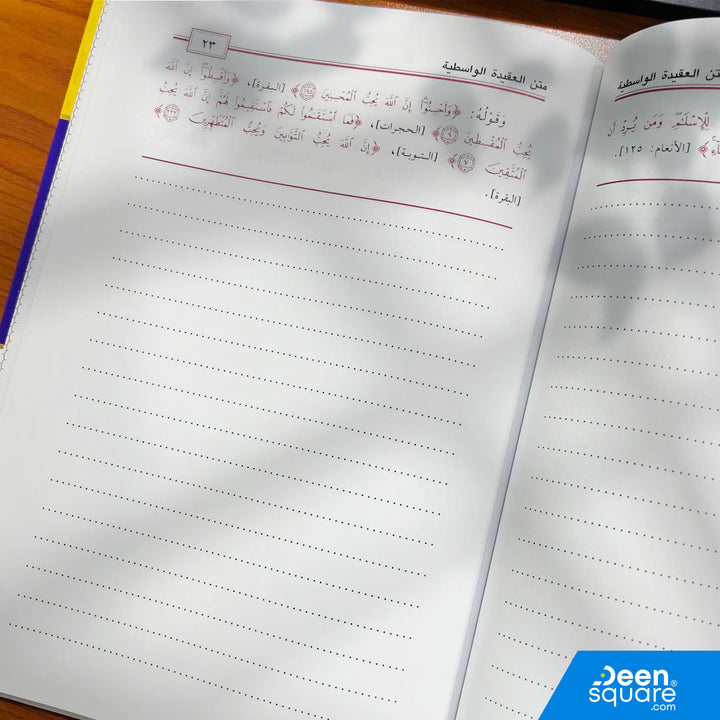 متن العقيدة الواسطية
لِلْإِسْلَٰمِ وَمَن يُرِدْ أَن
[الأنعام: ١٢٥].
متن العقيدة الواسطية
٢٣
وَقَوْلُهُ: ﴿وَأَحْسِنُوٓا۟ إِنَّ ٱللَّهَ يُحِبُّ ٱلْمُحْسِنِينَ ١٩٥﴾ [البقرة]، ﴿وَأَقْسِطُوٓا۟ إِنَّ ٱللَّهَ
يُحِبُّ ٱلْمُقْسِطِينَ ٩﴾ [الحجرات]، ﴿فَمَا ٱسْتَقَٰمُوا۟ لَكُمْ فَٱسْتَقِيمُوا۟ لَهُمْ إِنَّ ٱللَّهَ يُحِبُّ
ٱلْمُتَّقِينَ ٧﴾ [التوبة]، ﴿إِنَّ ٱللَّهَ يُحِبُّ ٱلتَّوَّٰبِينَ وَيُحِبُّ ٱلْمُتَطَهِّرِينَ ٢٢٢﴾
[البقرة].
Deen
square®
.com